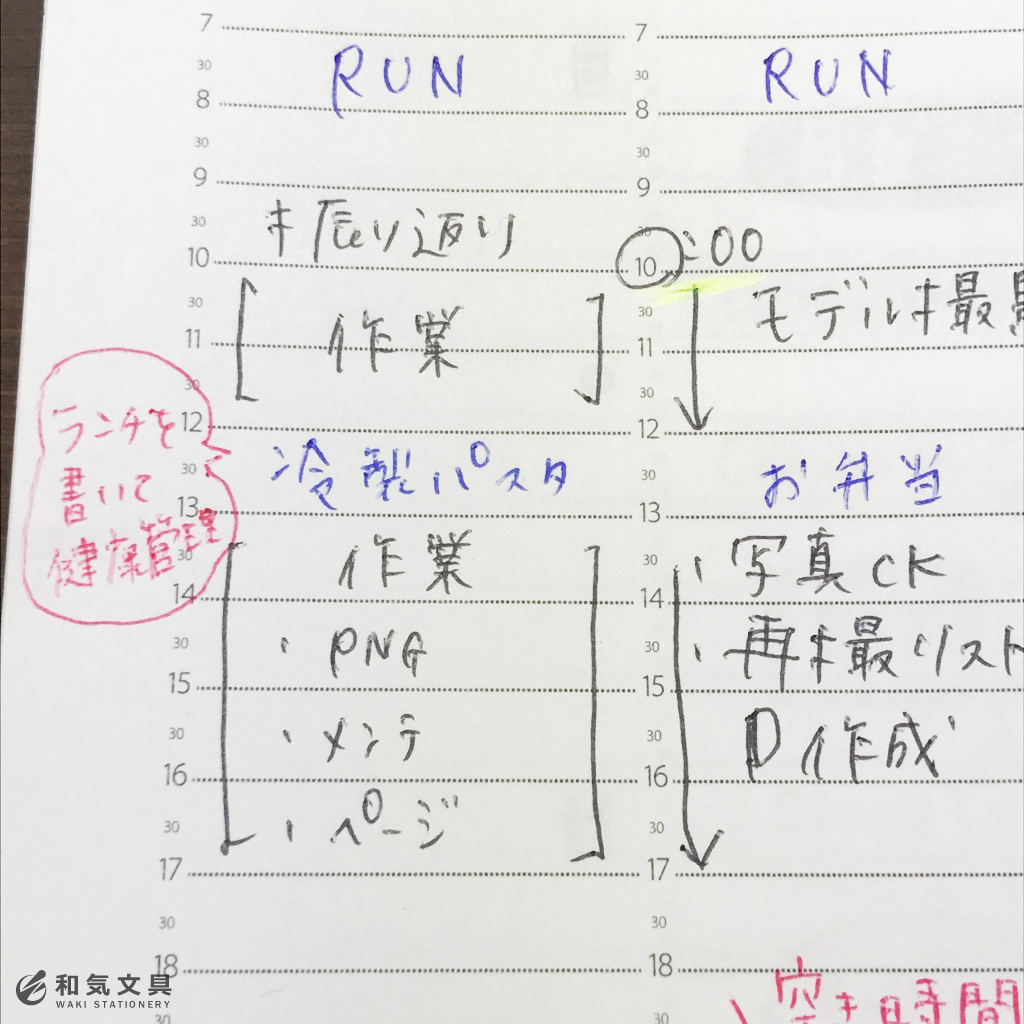 7 7
30 RUN 30 RUN
8 8
30 30
9 9
30 振り返り 30
10 10 :00
30 30 モデル撮影
11 作業 11
30 30
ランチを 12 12
書いて 30 冷製パスタ 30 お弁当
健康管理 13 13
30 作業 30 ・写真CK
14 14
30 ・PNG 30 ・再撮リスト
15 15
30 ・メンテ 30 P作成
16 16
30 ・ページ 30
17 17
30 30
18 18
和気文具
WAKI STATIONERY
空き時間
30 30